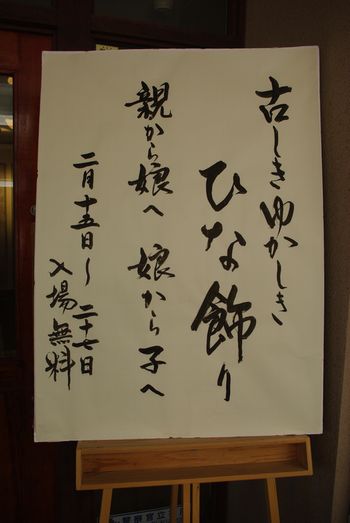 古しきゆかしき
ひな飾り
親から娘へ 娘から子へ
二月十五日〜二十七日
入場無料